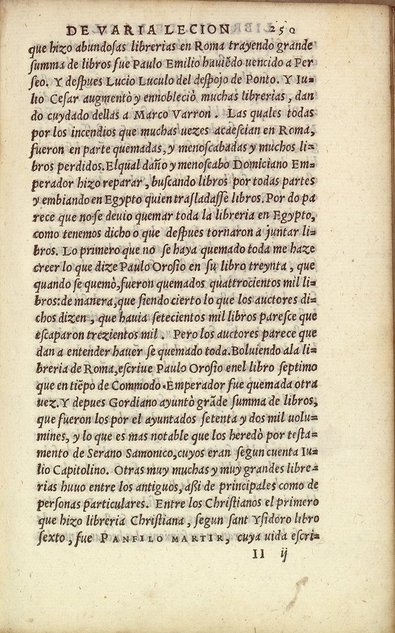 DE VARIA LECION 250
que hizo abundosas librerias en Roma trayendo grande
summa de libros fue Paulo Emilio haviẽdo vencido a Per
seo. Y despues Lucio Luculo del despojo de Ponto. Y Iu-
lio Cesar augmentò y ennobleciò muchas librerias, dan
do cuydado dellas a Marco Varron. Las quales todas
por los incendios que muchas uezes acaescian en Roma,
fueron en parte quemadas, y menoscabadas y muchos li-
bros perdidos. Elqual daño y menoscabo Domiciano Em-
perador hizo reparar, buscando libros por todas partes
y embiando en Egypto quien trasladasse libros. Por do pa
rece que no se deuio quemar toda la libreria en Egypto,
como tenemos dicho o que despues tornaron a juntar li-
bros. Lo primero que no se haya quemado toda me haze
creer lo que dize Paulo Orosio en su libro treynta, que
quando se quemò, fueron quemados quattrocientos mil li-
bros: de manera, que siendo cierto lo que los auctores di-
chos dizen, que havia setecientos mil libros paresce que
escaparon trezientos mil. Pero los auctores parece que
dan a entender haver se quemado toda. Boluiendo ala li-
breria de Roma, escriue Paulo Orosio enel libro septimo
que en tiẽpo de Commodo Emperador fue quemada otra
vez. Y depues Gordiano ayuntò grãde summa de libros,
que fueron los por el ayuntados setenta y dos mil volu-
mines, y lo que es mas notable que los heredò por testa-
mento de Serano Samonico, cuyos eran segun cuenta Iu-
lio Capitolino. Otras muy muchas y muy grandes libre-
rias huuo entre los antiguos, assi de principales como de
personas particulares. Entre los Christianos el primero
que hizo libreria Christiana, segun sant Ysidoro libro
sexto, fue PANFILO MARTIR, cuya vida escri-
II ij